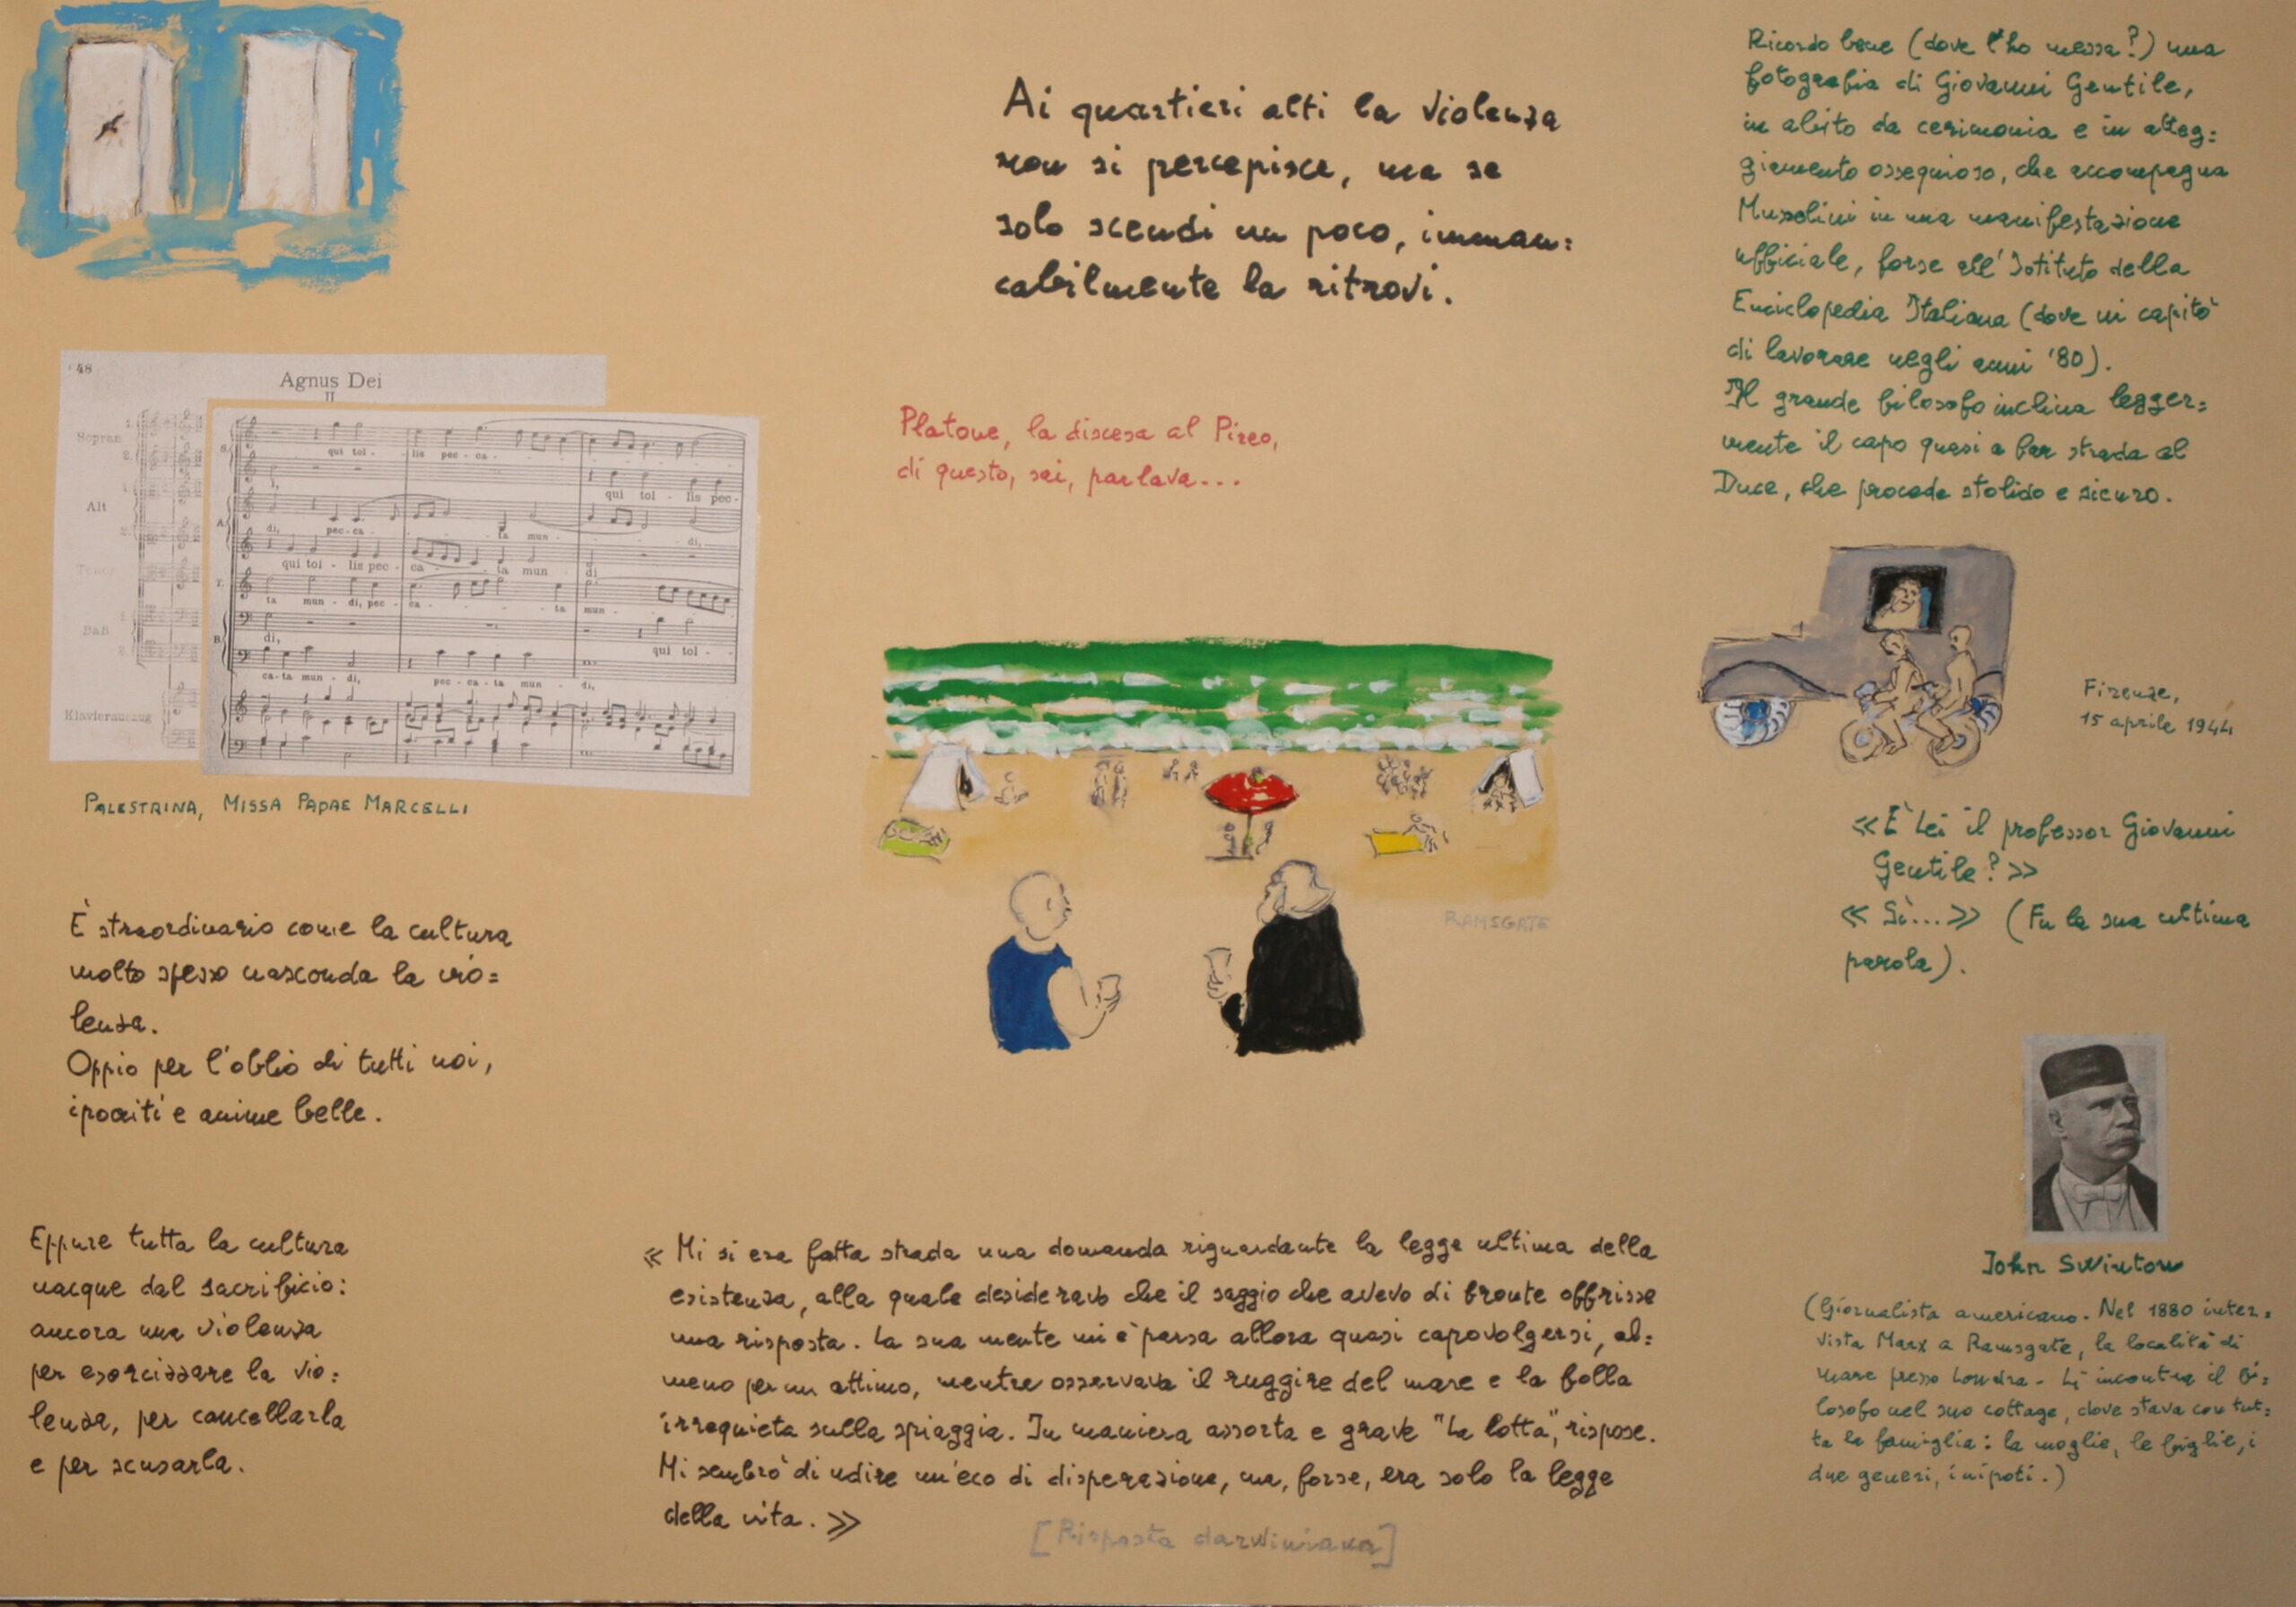 Ai quartieri alti la violenza
non si percepisce, ma se
solo scendi un poco, imman=
cabilmente la ritrovi.
Platone, la discesa al Pireo,
di questo, sai, parlava...
RAMSGATE
48
Agnus Dei
II
Sopran
Alt
Tenor
Baß
Klavierauszug
qui tol - lis pec - ca -
qui tol - lis pec -
di, pec - ca - ta mun - di,
qui tol - lis pec - ca - ta mun - di
ta mun - di, pec - ca - ta mun -
di, qui tol -
ca - ta mun - di, pec - ca - ta mun - di,
PALESTRINA, MISSA PAPAE MARCELLI
È straordinario come la cultura
molto spesso nasconda la vio=
lenza.
Oppio per l'oblio di tutti noi,
ipocriti e anime belle.
Eppure tutta la cultura
nacque dal sacrificio:
ancora una violenza
per esorcizzare la vio=
lenza, per cancellarla
e per scusarla.
« Mi si era fatta strada una domanda riguardante la legge ultima della
esistenza, alla quale desideravo che il saggio che avevo di fronte offrisse
una risposta. La sua mente mi è parsa allora quasi capovolgersi, al=
meno per un attimo, mentre osservava il ruggire del mare e la folla
irrequieta sulla spiaggia. In maniera assorta e grave "La lotta", rispose.
Mi sembrò di udire un'eco di disperazione, ma, forse, era solo la legge
della vita. »
[Risposta darwiniana]
Ricordo bene (dove l'ho messa?) una
fotografia di Giovanni Gentile,
in abito da cerimonia e in atteg=
giamento ossequioso, che accompagna
Mussolini in una manifestazione
ufficiale, forse all'Istituto della
Enciclopedia Italiana (dove mi capitò
di lavorare negli anni '80).
Il grande filosofo inclina legger=
mente il capo quasi a far strada al
Duce, che procede stolido e sicuro.
Firenze,
15 aprile 1944
«È Lei il professor Giovanni
Gentile?»
«Sì...» (Fu la sua ultima
parola).
John Swinton
(Giornalista americano. Nel 1880 inter=
vista Marx a Ramsgate, la località di
mare presso Londra. Lì incontra il fi=
losofo nel suo cottage, dove stava con tut=
ta la famiglia: la moglie, le figlie, i
due generi, i nipoti.)